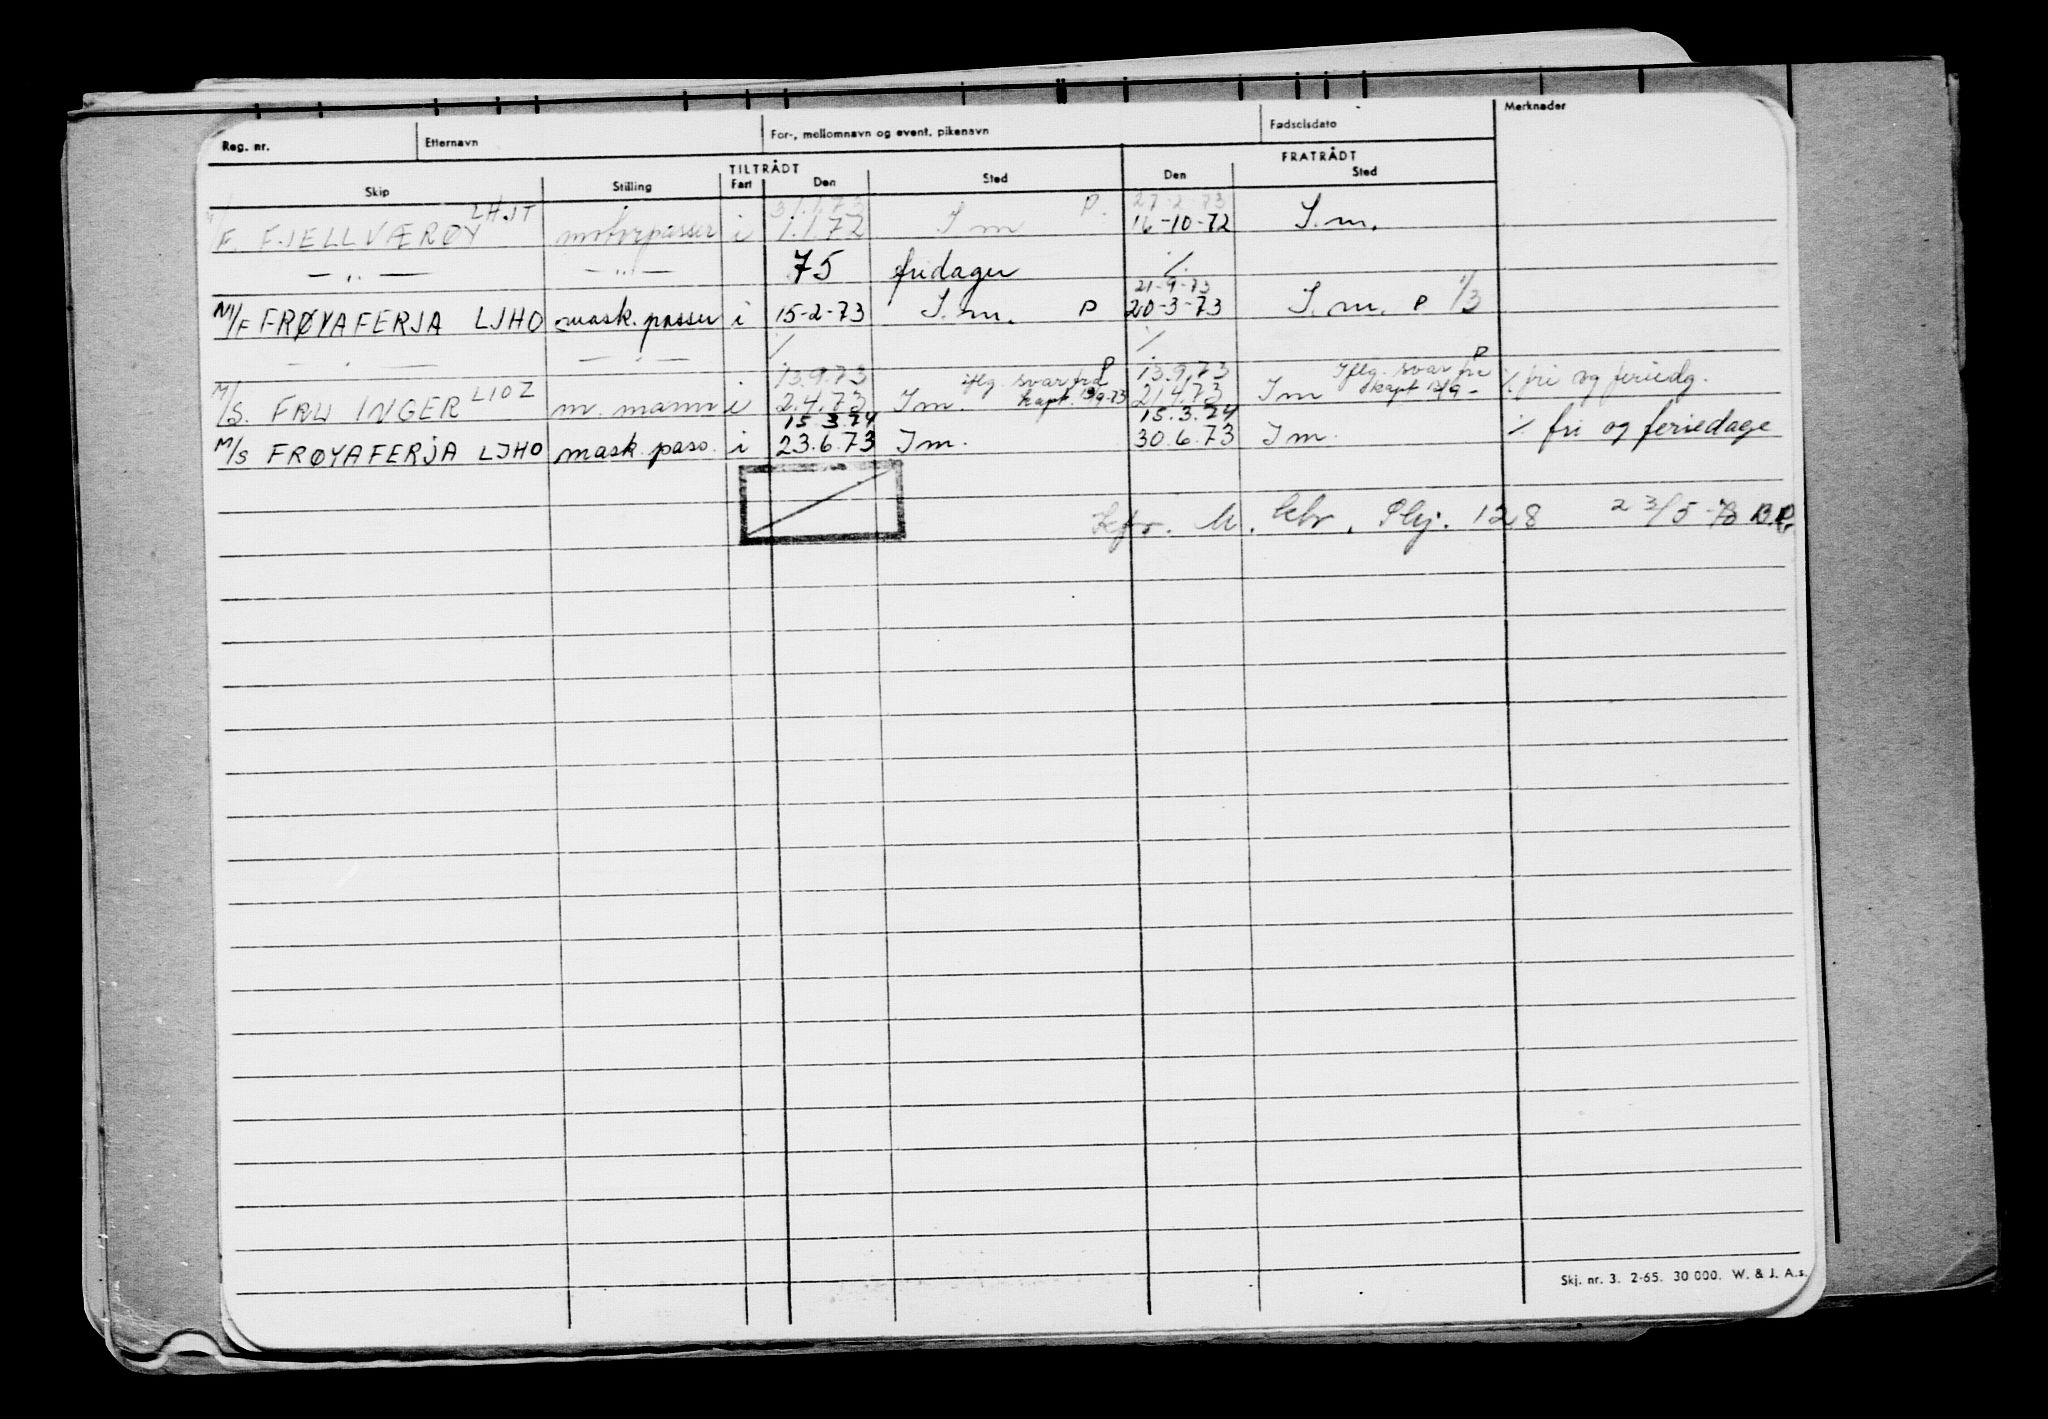 Reg. nr. Etternavn For-, mellomnavn og event. pikenavn Fødselsdato Merknader
TILTRÅDT FRATRÅDT
Skip Stilling Fart Den Sted Den Sted
LHJT 31.1.73 P. 27-2-73
M/F. FJELLVÆRØY motorpasser i 1.1.72 I m 16-10-72 I.m.
— " — — " — 75 fridager ./.
21-9-73
M/F FRØYAFERJA LJHO mask. passer i 15-2-73 I.m. P 20-3-73 I.m. P 1/3
— " — — " — ./. ./.
13.9.73 iflg. svar fra P 13.9.73 Iflg. svar fra P
M/S. FRU INGER LIOZ m. mann i 2.4.73 I m. kapt. 13/9-73 21.4.73 I m kapt 13/9- ./. fri og feriedg.
15.3.74 15.3.74
M/S FRØYAFERJA LJHO mask. pass. i 23.6.73 I m. 30.6.73 I m. ./. fri og feriedage
128 23/5-73
Skj. nr. 3. 2-65. 30 000. W. & J. A.s.